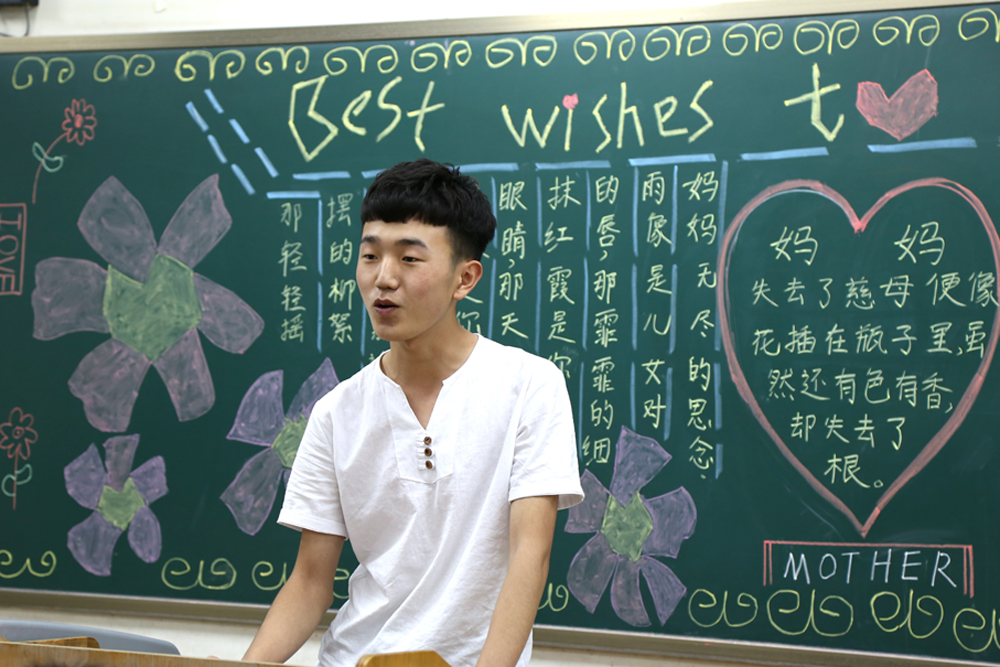 Best wishes t
那轻轻摇
摆的柳絮
你
眼睛,那天
抹红霞是你
的唇,那霏霏的细
雨像是儿女对
妈妈无尽的思念
妈 妈
失去了慈母便像
花插在瓶子里,虽
然还有色有香,
却失去了
根。
MOTHER